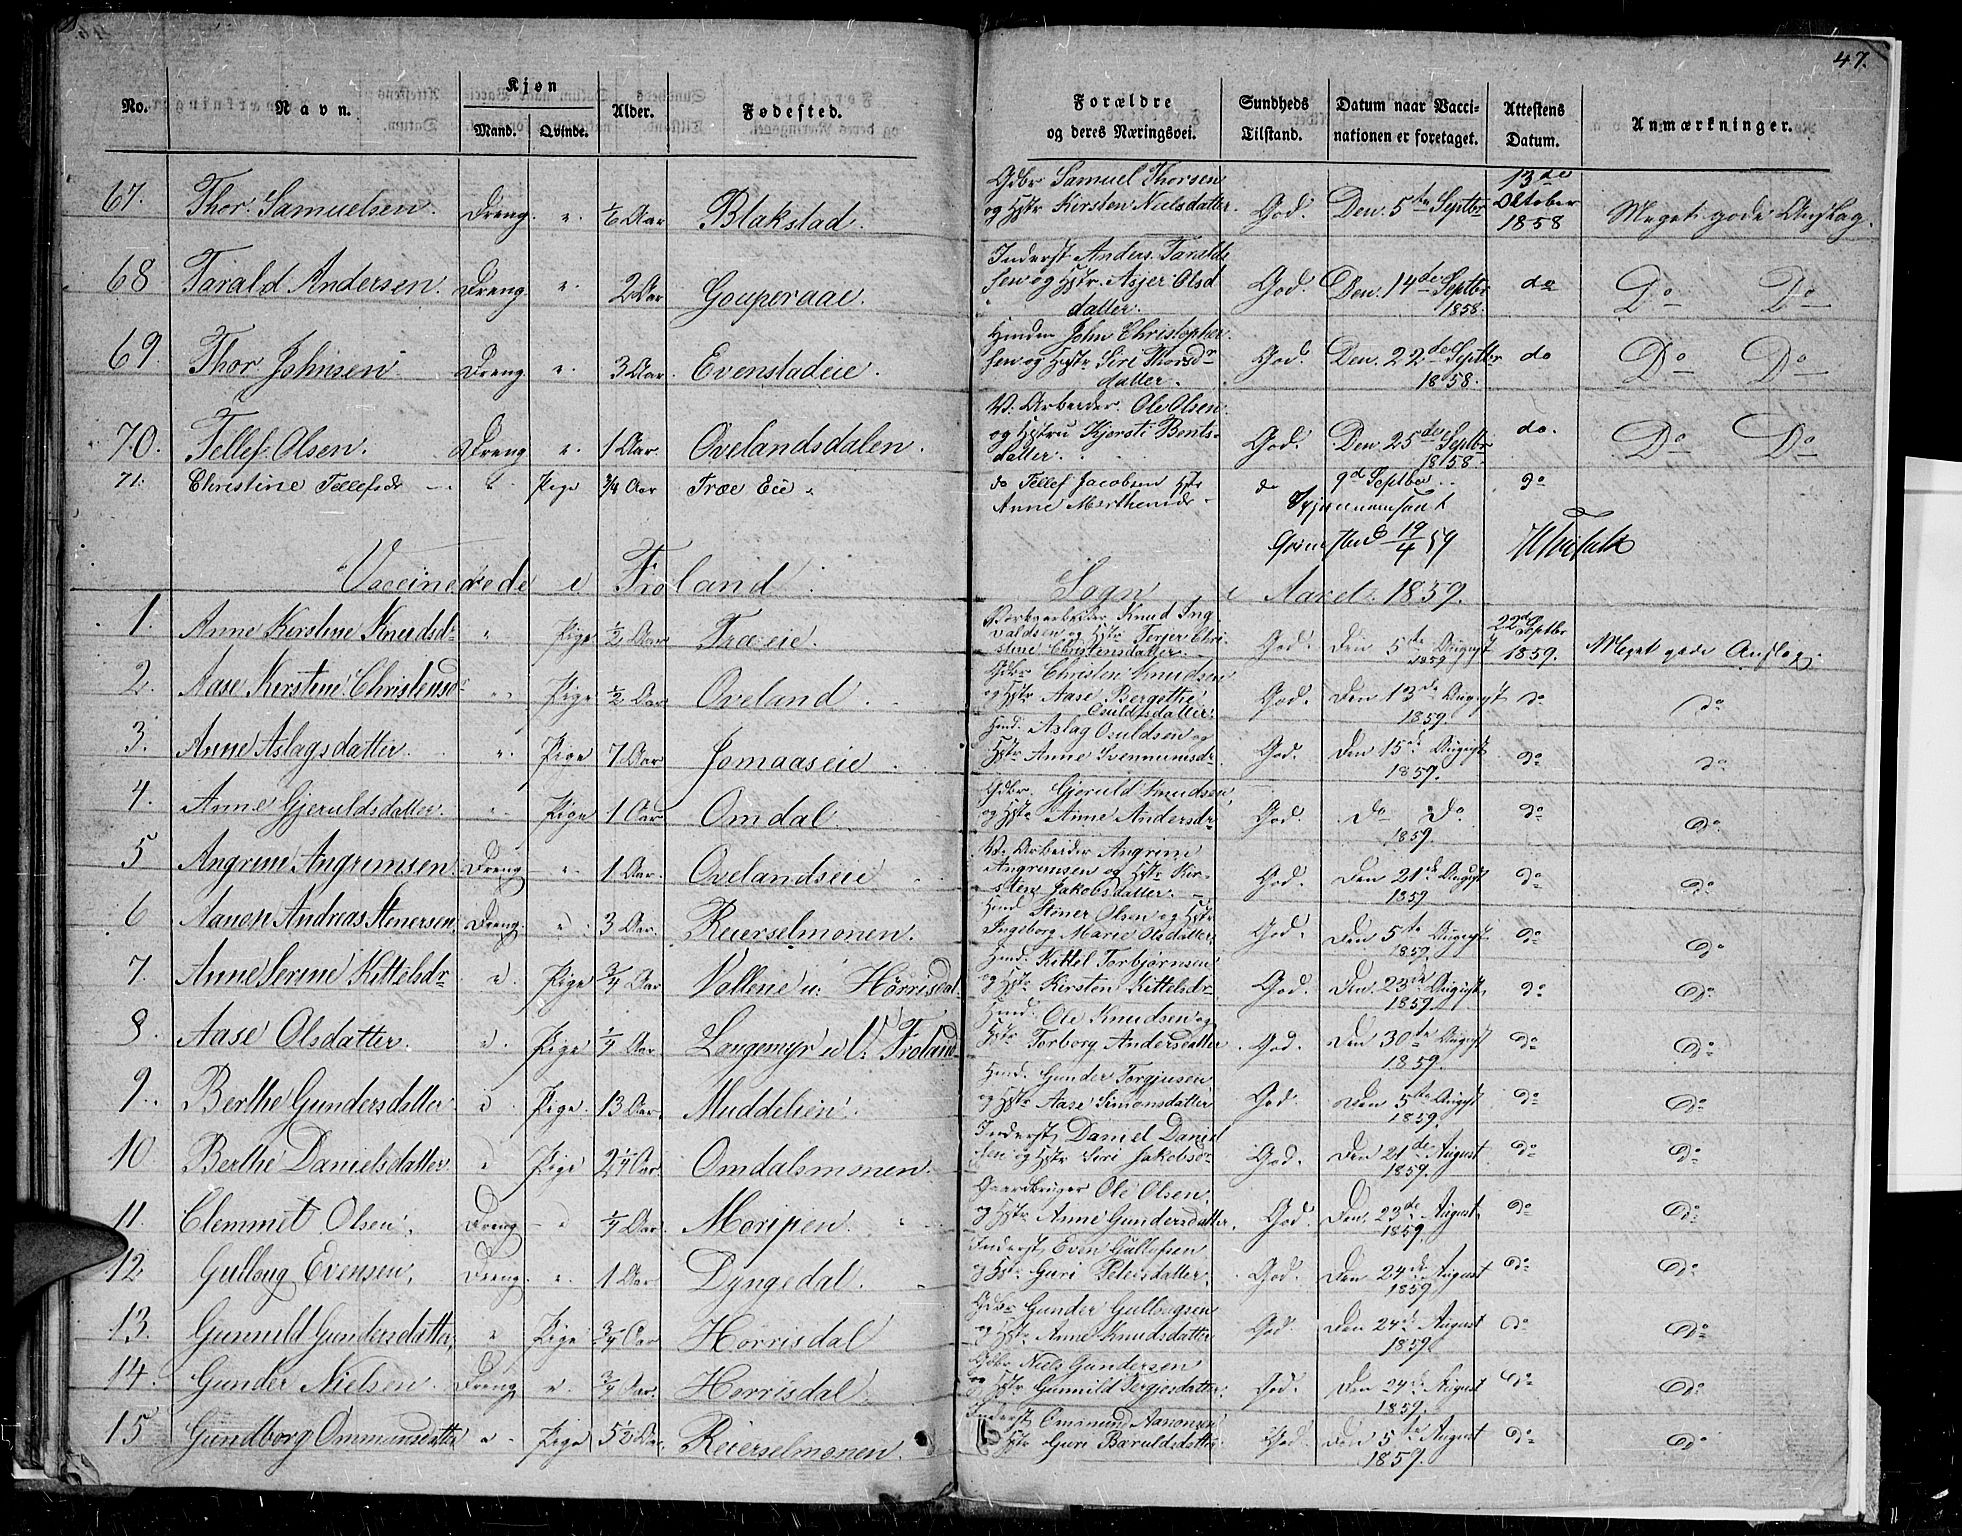 47.
No. Navn. Kjøn Mand. Qvinde. Alder. Fødested. Forældre og deres Næringsvei. Sundheds Tilstand. Datum naar Vaccinationen er foretaget. Attestens Datum. Anmærkninger.
67. Thor Samuelsen. Dreng. " 1/6 Aar Blakstad. Gdbr Samuel Thorsen og Hstr Kirsten Nielsdatter. God. Den 5te Septbr 13de Oktober 1858 Meget gode Anslag.
68 Tarald Andersen. Dreng " 2 Aar Inderst Anders Taraldsen og Hstr. Asjer Olsdatter. God. Den 14de Septbr 1858. do Do Do
69. Thor Johnsen Dreng " 3 Aar. Evenstadeie. John Christophersen og Hstr Siri Thorsdatter. God Den 22de Septbr 1858. do Do Do
70. Tellef Olsen. Dreng " 1 Aar. Ovelandsdalen. V. Arbeider Ole Olsen og Hstru Kjersti Bentsdatter. God. Den 25de Septbr 1858. do. Do Do
71. Christine Tellefsdr " Pige 3/4 Aar Træ Eie. do Tellef Jacobsen Hst Anne Marthe do 9d Septber do
Gjennemseet
Grimstad 19/4 59
Vaccinerede i Froland Sogn i Aaret 1859.
1. Anne Kirstine Knudsdr " Pige 1/2 Aar Træeie. Knud Ingvaldsen og Hstr Terjer Christine Christensdatter. God. Den 5te August 1859 22de Septbr 1859. Meget gode Anslag.
2. Aase Kirstine Christensdr " Pige 1/2 Aar Oveland. Gdbr Christen Knudsen og Hstr Aase Bergethe Osuldsdatter. God. Den 13de August 1859. do do
3. Anne Aslagsdatter. " Pige 7 Aar Jomaaseie. Hmd. Aslag Osuldsen og Hstr Anne God. Den 15de August 1859. do do
4. Anne Gjeruldsdatter. " Pige 1 Aar Omdal. Gdbr. Gjeruld Knudsen og Hstr Anne Andersdr God. Do Do 1859. do do
5 Angrim Angrimsen Dreng " 1 Aar. Ovelandseie V. Arbeider Angrim Angrimsen og Hstr Kirsten Jakobsdatter. God. Den 21de August 1859 do do
6 Aanon Andreas Stenersen. Dreng. " 3 Aar. Reierselmonen. Hmd. Stiner Olsen og Hstr Ingeborg Marie Olsdatter. God. Den 5te August 1859. do do
7. Anne Serine Kittelsdr " Pige 3/4 Aar Vollene u. Hørrisdal. Hmd. Kittel Torbjørnsen og Hstr Kirsten Kittelsdr God. Den 23de August 1859. do do
8. Aase Olsdatter. " Pige 1/4 Aar. Langemyr u. V. Froland Hmd. Ole Knudsen og Hstr Torborg Andersdatter God. Den 30de August 1859. do do
9. Berthe Gundersdatter " Pige 13 Aar. Muddelien. Hmd. Gunder Torgjusen og Hstr Aase Simonsdatter God. Den 5te August 1859. do do
10. Berthe Danielsdatter " Pige 2 1/4 Aar. Omdalsmonen. Inderst Daniel Danielsen og Hstr Siri Jakobsdr God. Den 21de August 1859. do do
11. Clemmet Olsen. Dreng " 1/4 Aar. Moripen. Gaardbruger Ole Olsen og Hstr Anne Gundersdatter. God. Den 23de August. 1859. do do
12. Gulloug Evensen. Dreng " 1 Aar Lyngedal. Inderst Even Gullofsen og Hstr Guri Petersdatter. God. Den 24de August 1859. do do
13. Gunuld Gundersdatter. " Pige 3/4 Aar Hørrisdal Gdbr Gunder Gullougsen og Hstr Anne Knudsdatter God. Den 24de August 1859. do do
14. Gunder Nielsen. Dreng " 3/4 Aar. Hørrisdal. Gdbr Niels Gundersen og Hstr Gunnild Terjesdatter. God. Den 24de August 1859. do do
15 Gundborg Ommunsdatter " Pige 5 1/2 Aar. Reierselmonen. Inderst Ommund Aanonsen og Hstr Guri Baruldsdatter God. Den 5te August 1859. do do